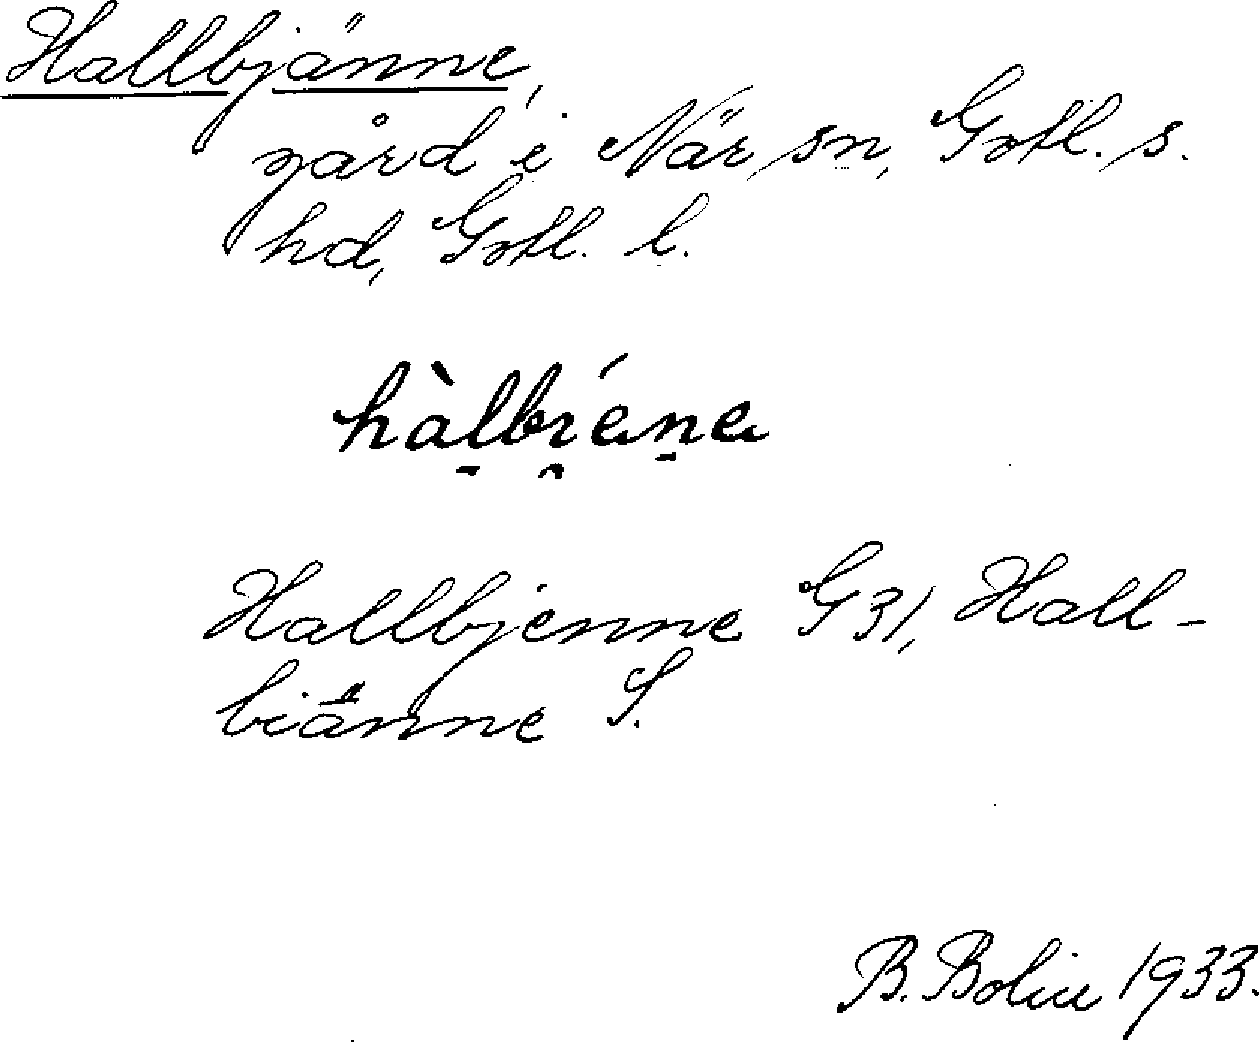 Hallbjänne,
gård i När sn, Gotl. s.
hd, Gotl. l.
Hallbjenne G31, Hall-
biänne S.
B. Bolin 1933.